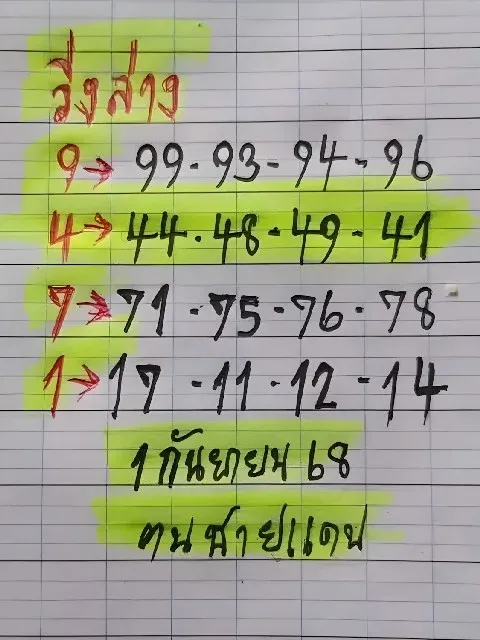 วิ่งล่าง
9→ 99-93-94-96
4→ 44-48-49-41
7→ 71-75-76-78
1→ 17-11-12-14
1 กันยายน 68
คนชายแดน